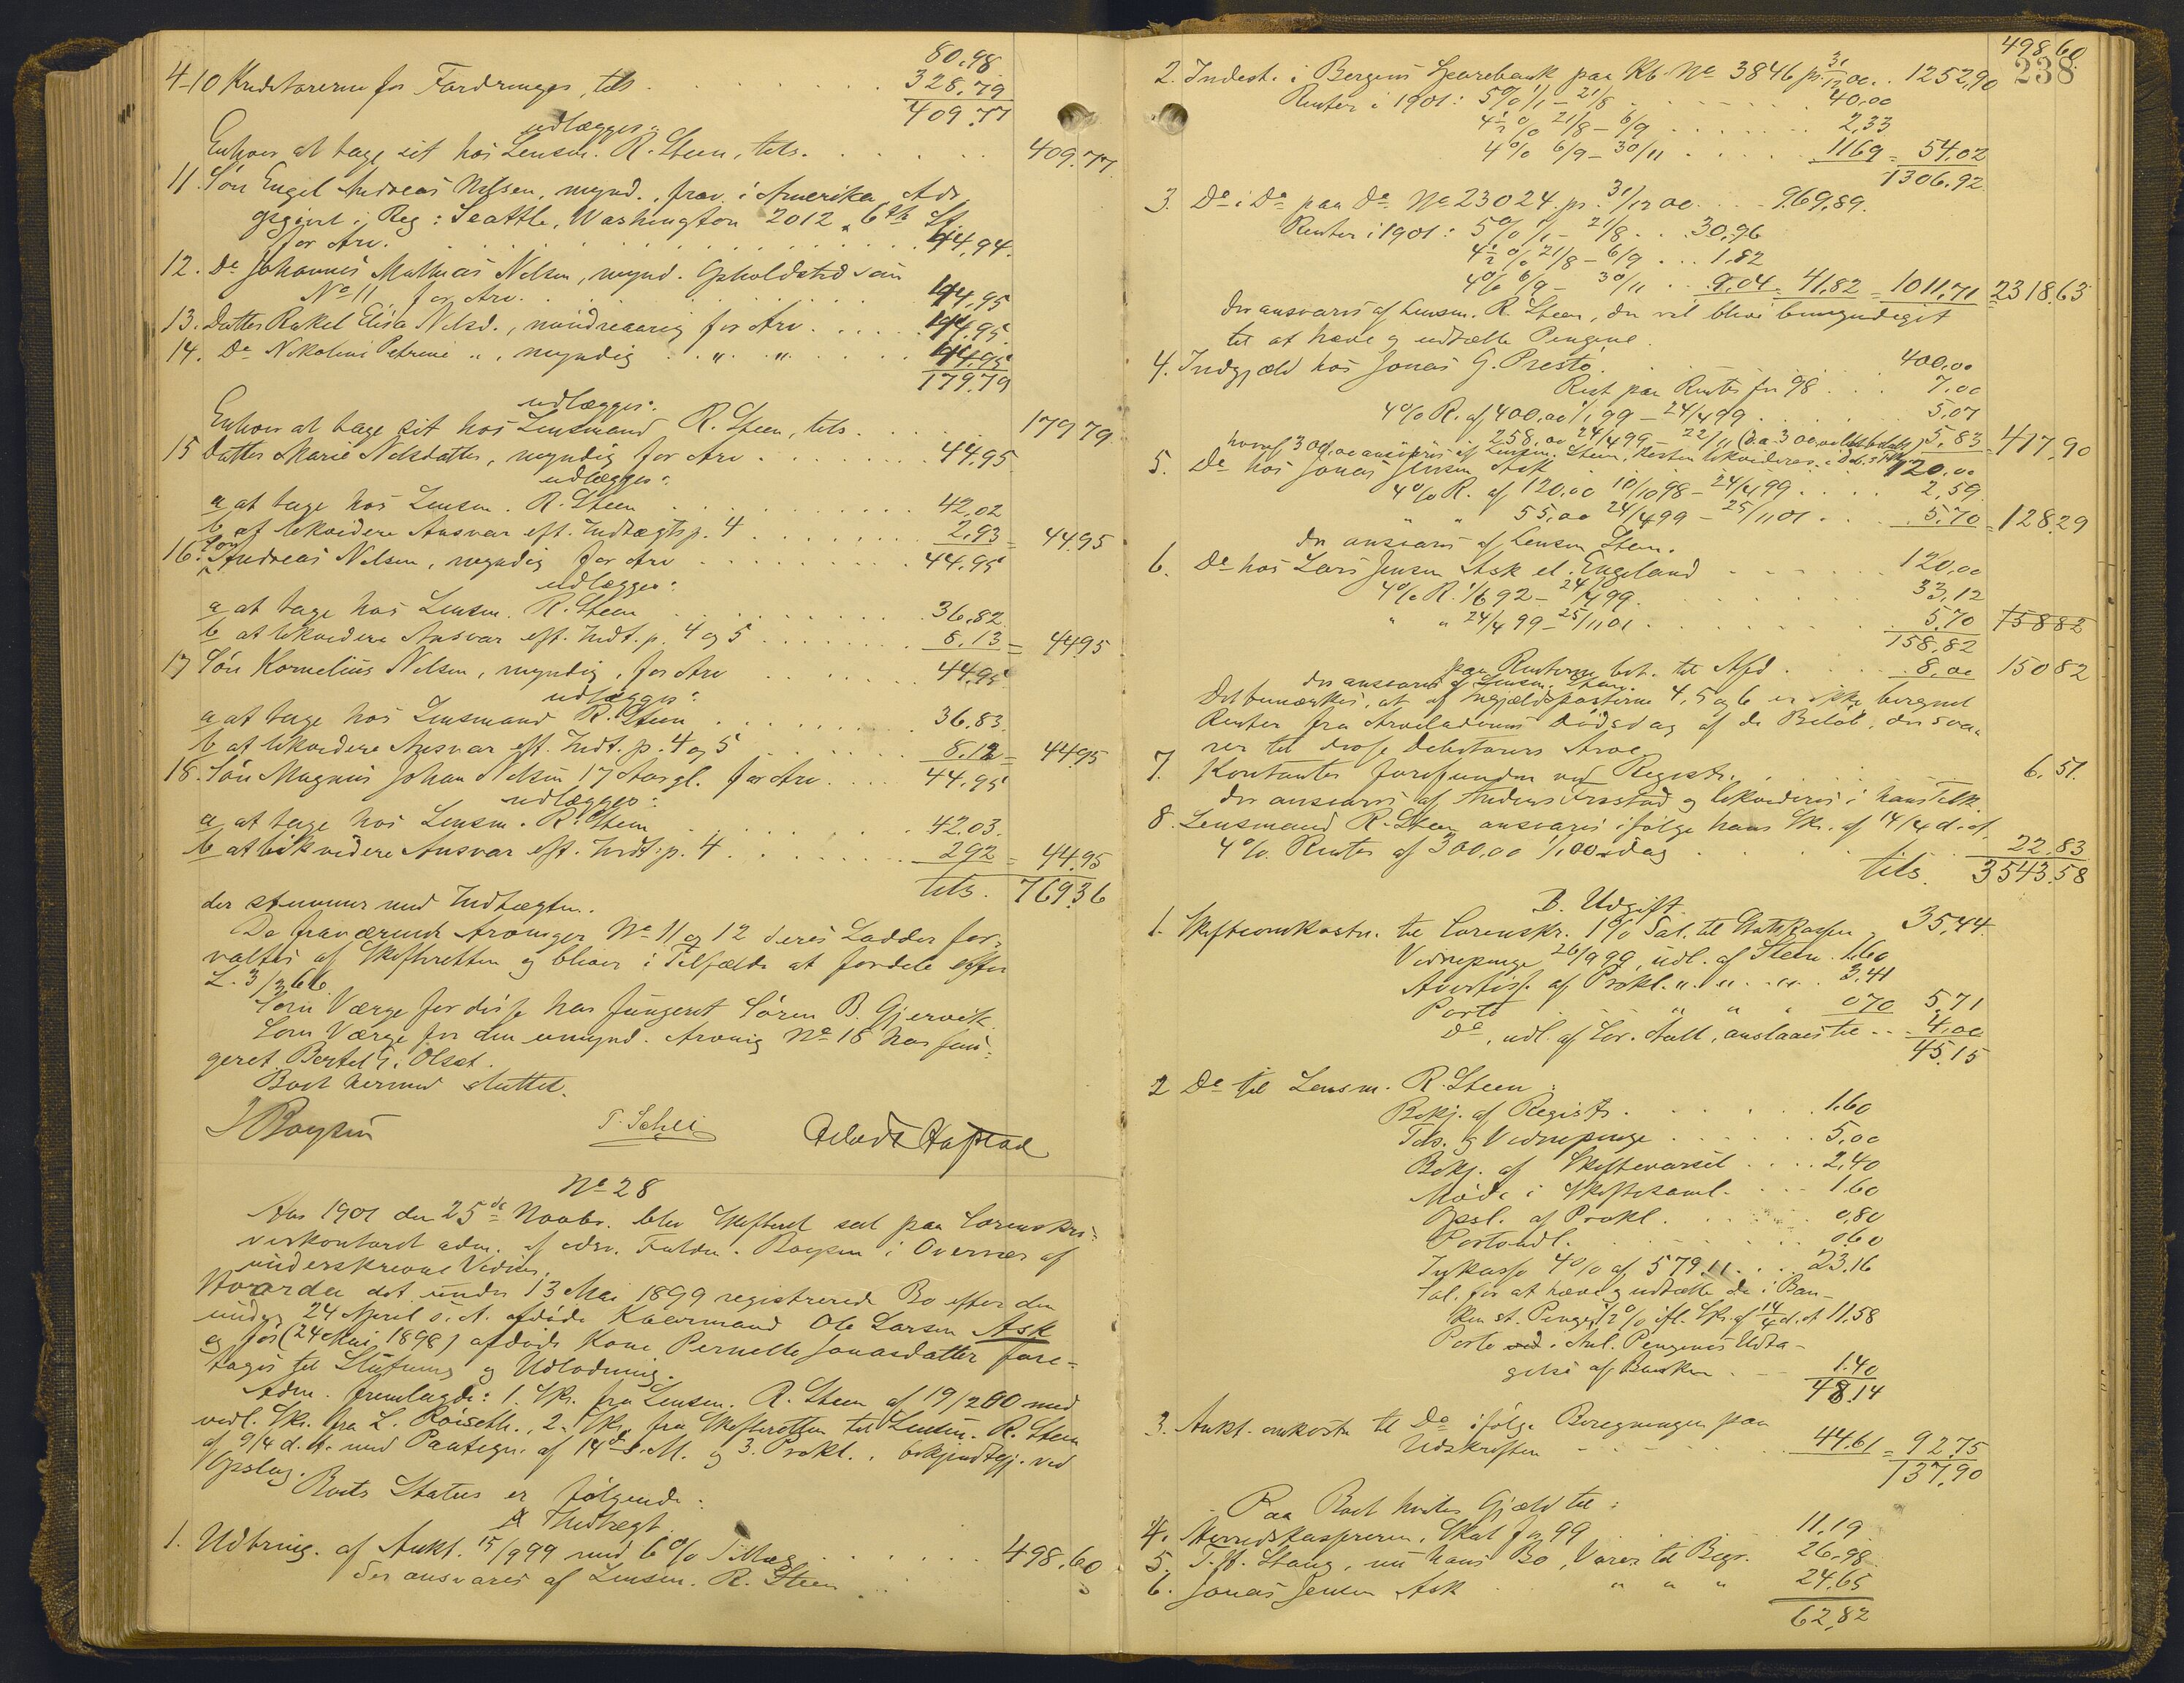 80.98
4-10 Kreditorerne for Fordringer, tils. 328.79
409.77
udlægges:
Enhver at tage sit hos Lensm. R. Steen, tils. 409.77.
11. Søn Engel Andreas Nilsen, mynd., frav. i Amerika, Adr.
opgivet i Reg: Seattle, Washington 2012, 6th St.
for Arv. 44.94.
12. Do Johannes Mathias Nelsen, mynd. Opholdsted som
No 11, for Arv. 44.95
13. Datter Rakel Elisa Nelsd., mindreaarig for Arv 44.95
14. Do Nikoline Petrine ", myndig " " 44.95
179.79
udlægges:
Enhver at tage sit hos Lensmand R. Steen, tils. 179 79
15 Datter Marie Nelsdatter, myndig for Arv 44.95
udlægges:
a at tage hos Lensm. R. Steen 42.02
b at likvidere Ansvar eft. Indtægtsp. 4 2.93 = 44.95
16. Søn Andreas Nelsen, myndig for Arv 44.95
udlægges:
a at tage hos Lensm. R. Steen 36.82
b at likvidere Ansvar eft. Indt. p. 4 og 5 8.13 = 44.95
17 Søn Kornelius Nelsen, myndig, for Arv 44.95
udlægges:
a at tage hos Lensmand R. Steen 36.83
b at likvidere Ansvar eft. Indt. p. 4 og 5 8.12 = 44.95
18. Søn Magnus Johan Nelsen 17 Aar gl. for Arv 44.95
udlægges:
a at tage hos Lensm. R. Steen 42.03.
b at likvidere Ansvar eft. Indt. p. 4 2.92 = 44.95
tils. 769.36
der stemmer med Indtægten.
De fraværende Arvinger No 11 og 12 deres Lodder for-
valtes af Skifteretten og bliver i Tilfælde at fordele efter
L. 3/3 66.
Som Værge for disse har fungeret Søren B. Gjervik.
Som Værge for den umynd. Arving No 18 har fun-
geret Bertel J. Olset.
Boet hermed sluttet.
J Boysen T. Schei
No 28
Aar 1901 den 25de Novbr. blev Skifteret sat paa Sorenskri-
verkontoret adm. af edsv. Fuldm. Boysen i Overvær af
underskrevne Vidner.
Hvorda det under 13 Mai 1899 registrerede Bo efter den
under 24 April s. A. afdøde Kaarmand Ole Larsen Ask
og før (24 Mai 1898) afdøde Kone Pernelle Jonasdatter fore-
tages til Slutning og Udlodning.
Adm. fremlagde: 1. Skr. fra Lensm. R. Steen af 19/2 00 med
vedl. Skr. fra L. Røiseth., 2. Skr. fra Skifteretten til Lensm. R. Steen
af 9/4 d. A. med Paategn. af 14de s. M. og 3. Prokl., bekjendtgj. ved
Opslag.
Boets Status er følgende:
A Indtægt.
1. Udbring. af Aukt. 15/9 99 med 6% 498.60
der ansvares af Lensm. R. Steen
498.60
238
2. Indest. i Bergens Sparebank paa Kb. No 3846 pr. 31/12 00. 1252,90
Renter i 1901: 5% 1/1 – 21/8 40,00
4½% 21/8 – 6/9 2,33
4% 6/9 – 30/11 11 69 = 54,02
1306.92
3. Do i Do paa Do No 23024 pr. 31/12 00. 969,89.
Renter i 1901: 5% 1/1 – 21/8 30,96
4½% 21/8 – 6/9 1.82
4% 6/9 – 30/11 9.04 = 41,82 = 1011,71 = 2318,63
der ansvares af Lensm. R. Steen, der vil blive bemyndiget
til at hæve og udtælle Pengene.
4. Indgjæld hos Jonas G. Prestø. 400,00
Rest paa Renter for 98 7.00
4% R. af 400,00 1/1 99 – 24/4 99 5,07
258,00 24/4 99 – 22/11 5,83 = 417,90
hvoraf 300,00 ansvares af Lensm. Steen, Resten likvideres i
5. Do hos Jonas Jensen Ask 120,00
4% R. af 120,00 10/10 98 – 24/4 99 2,59
" " 55,00 24/4 99 – 25/11 01 5.70 = 128.29
der ansvares af Lensm Steen.
6. Do hos Lars Jensen Ask el. Engeland 120,00
4% R. 1/6 92 – 24/4 99. 33,12
" " 24/4 99 – 25/11 01 5.70 158 82
158,82
paa Renterne bet. til Afd. 8,00 150 82
der ansvares af Lensm. Steen.
Det bemærkes, at af Indgjældsposterne 4, 5 og 6 er ikke beregnet
Renter fra Arveladerens Dødsdag af de Beløb, der sva-
rer til disse Debitorers Arv.
7. Kontanter forefunden ved Registr. 6.51.
der ansvares af Anders Frestad og likvideres i hans
8. Lensmand R. Steen ansvares ifølge hans Skr. af 14/4 d. A.
4% Renter af 300,00 1/1 00 – idag 22.83
tils. 3543.58
B. Udgift.
1. Skifteomkostn. til Sorenskr. 1% Sal. til Statskassen 35,44.
Vidnepenge 26/9 99, udl. af Steen 1.60
Avertiss. af Prokl. " " " 3.41
Porto " " " 0 70 5,71
Do, udl. af Sor. Aall, anslaaes til 4,00
45.15
2 Do til Lensm. R. Steen:
Bekj. af Registr. 1.60
Tds. og Vidnepenge 5,00
Bekj. af Skiftevarsel 2,40
Møde i Skiftesaml. 1.60
Opsl. af Prokl. 0,80
Portoudl. 0.60
Inkasso 4% af 579.11 23.16
Sal. for at hæve og udtælle de i Ban-
ken st. Penge ½% ifl. Skr. af 14/4 d. A 11,58
Porto i Anl. Pengenes Udta-
gelse af Banken 1.40
48.14
3. Aukt. omkostn til Do ifølge Beregningen paa
Udskriften 44.61 = 92.75
137,90
Paa Boet hviler Gjæld til:
4. Herredskassereren, Skat for 99 11.19
5. T. H. Stang, nu hans Bo, Varer til Begr. 26,98
6. Jonas Jensen Ask " " " 24.65
62,82